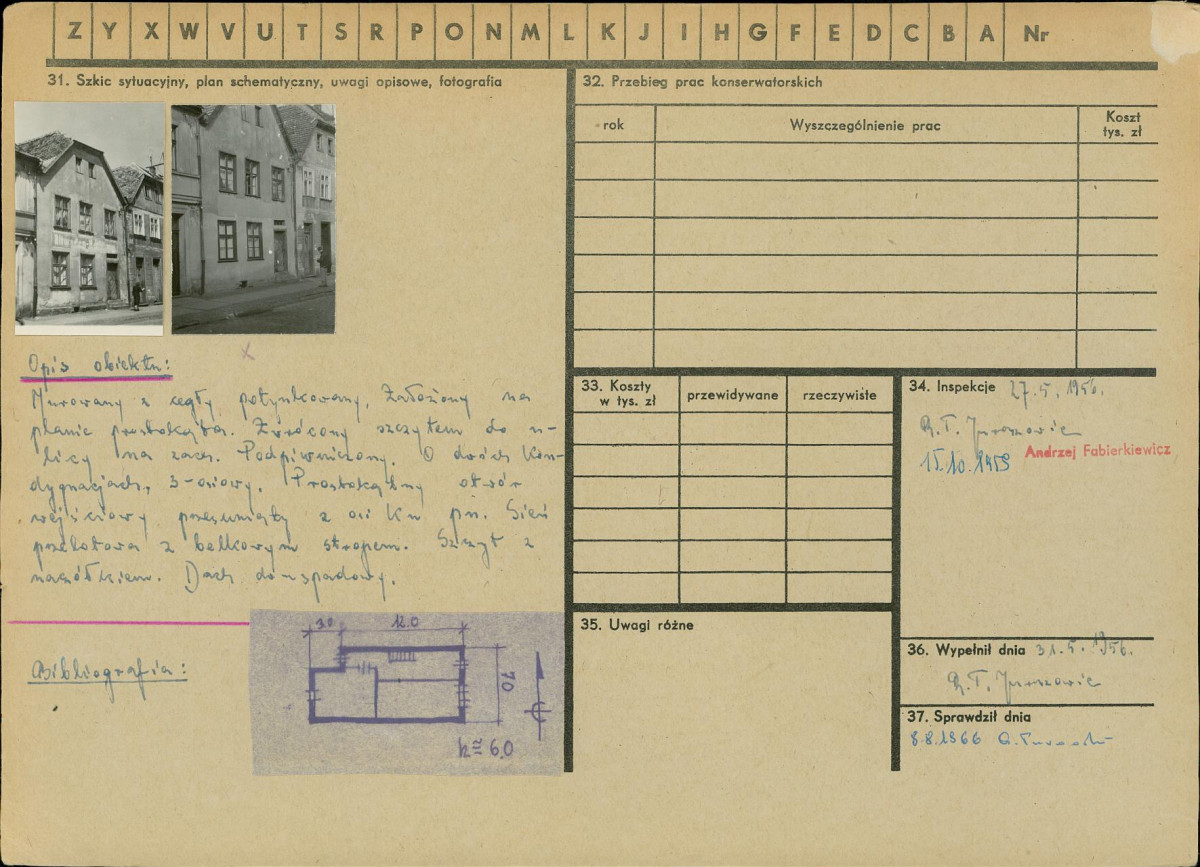 Z Y X W V U T S R P O N M L K J I H G F E D C B A Nr
31. Szkic sytuacyjny, plan schematyczny, uwagi opisowe, fotografia
Opis obiektu:
Murowany z cegły, potynkowany. Założony na
planie prostokąta. Zwrócony szczytem do u-
licy na zach. Podpiwniczony. O dwóch kon-
dygnacjach, 3-osiowy. Prostokątny otwór
wejściowy przesunięty z osi ku pn. Sień
przelotowa z belkowym stropem. Szczyt z
naczółkiem. Dach dwuspadowy.
Bibliografia:
3.0 12.0
7.0
h≅6.0
32. Przebieg prac konserwatorskich
rok Wyszczególnienie prac Koszt
tys. zł
33. Koszty
w tys. zł przewidywane rzeczywiste
34. Inspekcje 27.5.1956.
R.T.
15.10.1959 Andrzej Fabierkiewicz
35. Uwagi różne
36. Wypełnił dnia 31.5.1956.
R.T.
37. Sprawdził dnia
8.8.1966